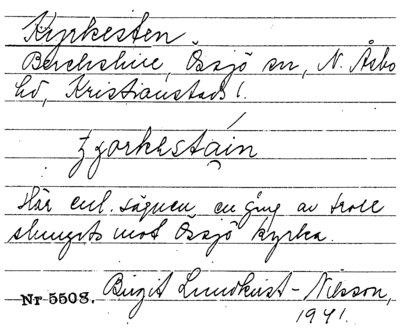 Kyrkesten
Össjö sn, N. Åsbo
hd, Kristianstads l.
Här enl. sägnen en gång av troll
slungats mot Össjö kyrka.
Nr 5508. Birgit Lundkvist-Nilsson,
1941.